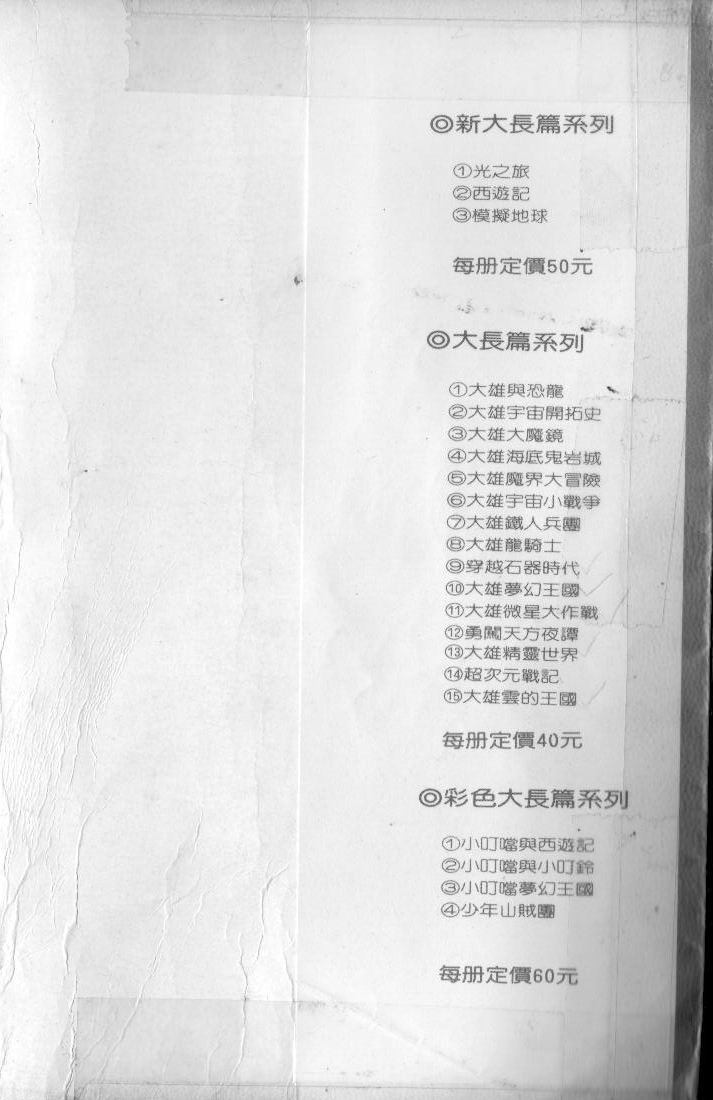 ◎新大長篇系列
①光之旅
②西遊記
③模擬地球
每册定價50元
◎大長篇系列
①大雄與恐龍
②大雄宇宙開拓史
③大雄大魔鏡
④大雄海底鬼岩城
⑤大雄魔界大冒險
⑥大雄宇宙小戰爭
⑦大雄鐵人兵團
⑧大雄龍騎士
⑨穿越石器時代
⑩大雄夢幻王國
⑪大雄微星大作戰
⑫勇闖天方夜譚
⑬大雄精靈世界
⑭超次元戰記
⑮大雄雲的王國
每册定價40元
◎彩色大長篇系列
①小叮噹與西遊記
②小叮噹與小叮鈴
③小叮噹夢幻王國
④少年山賊團
每册定價60元